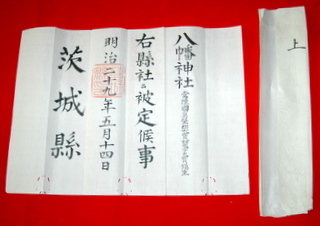 八幡神社
右縣社ニ被定候事
明治二十九年五月十四日
茨城縣
上